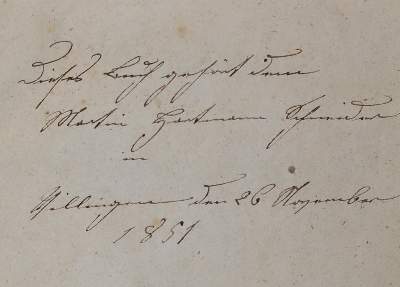 Dieses Buch gehört dem
Martin Hartmann Schneider
in
Villingen den 26 November
1851